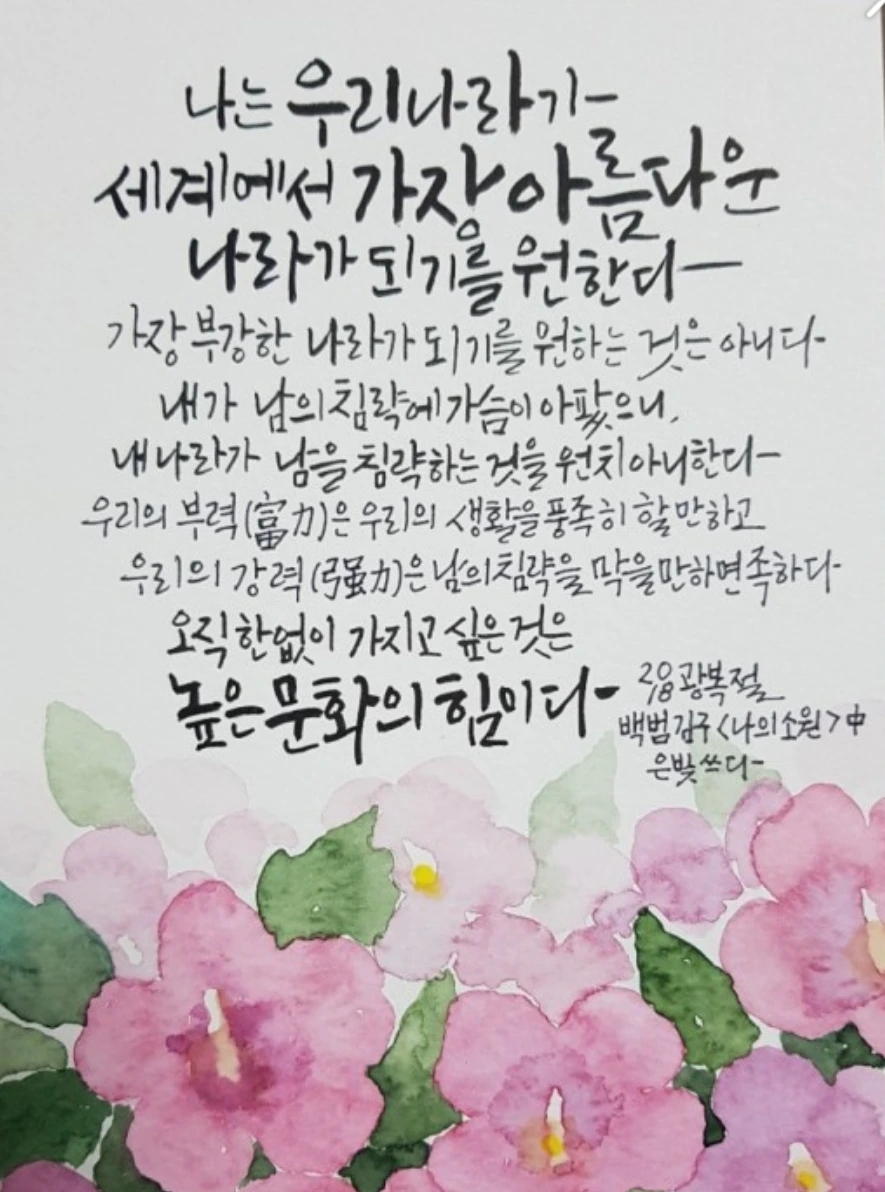 나는 우리나라가
세계에서 가장 아름다운
나라가 되기를 원한다
가장 부강한 나라가 되기를 원하는 것은 아니다
내가 남의 침략에 가슴이 아팠으니,
내 나라가 남을 침략하는 것을 원치 아니한다
우리의 부력(富力)은 우리의 생활을 풍족히 할 만하고
우리의 강력(强力)은 남의 침략을 막을 만하면 족하다
오직 한없이 가지고 싶은 것은
높은 문화의 힘이다
2018 광복절
백범김구 <나의소원> 中
은빛 쓰다